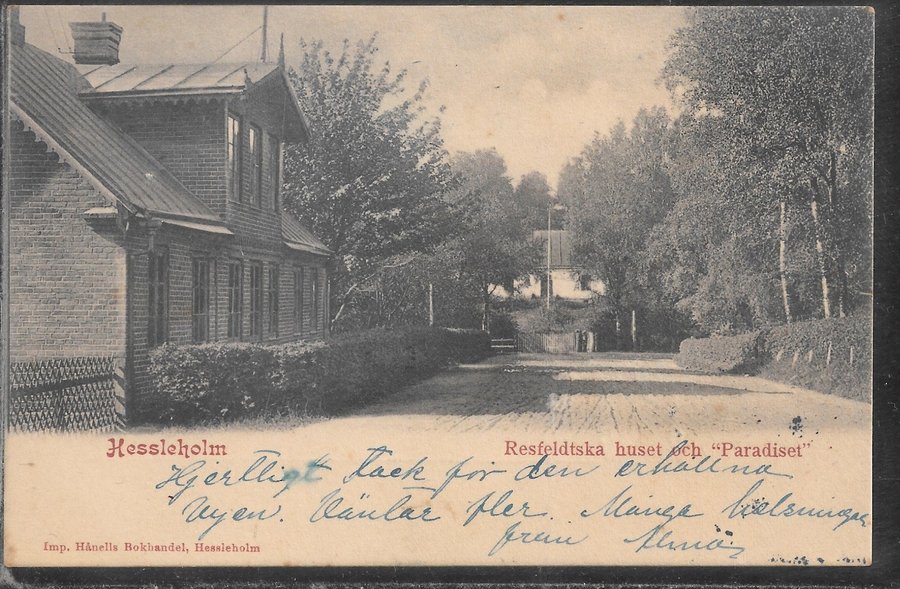 Hessleholm
Resfeldtska huset och "Paradiset"
Hjertligt Tack för den erhållna
Vyen. Väntar fler. Många helsningar
från
Imp. Hånells Bokhandel, Hessleholm